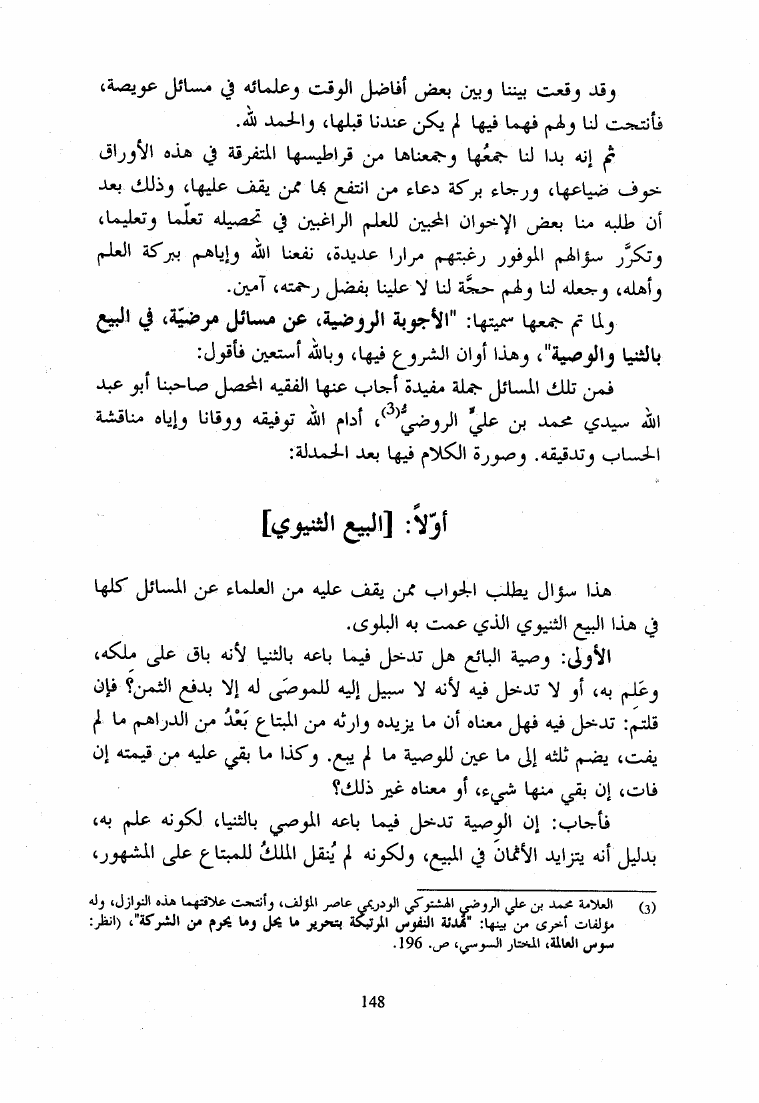 وقد وقعت بيننا وبين بعض أفاضل الوقت وعلمائه في مسائل عويصة،
فأنتجت لنا ولهم فهما فيها لم يكن عندنا قبلها، والحمد لله.
ثم إنه بدا لنا جمعُها وجمعناها من قراطيسها المتفرقة في هذه الأوراق
خوف ضياعها، ورجاء بركة دعاء من انتفع بها ممن يقف عليها، وذلك بعد
أن طلبه منا بعض الإخوان المحبين للعلم الراغبين في تحصيله تعلّما وتعليما،
وتكرَّر سؤالهم الموفور رغبتهم مرارا عديدة، نفعنا الله وإياهم ببركة العلم
وأهله، وجعله لنا ولهم حجَّة لنا لا علينا بفضل رحمته، آمين.
ولما تم جمعها سميتها: "الأجوبة الروضية، عن مسائل مرضيّة، في البيع
بالثنيا والوصية"، وهذا أوان الشروع فيها، وبالله أستعين فأقول:
فمن تلك المسائل جملة مفيدة أجاب عنها الفقيه المحصل صاحبنا أبو عبد
الله سيدي محمد بن عليٍّ الروضيُّ(3)، أدام الله توفيقه ووقانا وإياه مناقشة
الحساب وتدقيقه. وصورة الكلام فيها بعد الحمدلة:
أوّلاً: [البيع الثنيوي]
هذا سؤال يطلب الجواب ممن يقف عليه من العلماء عن المسائل كلها
في هذا البيع الثنيوي الذي عمت به البلوى.
الأولى: وصية البائع هل تدخل فيما باعه بالثنيا لأنه باق على ملكه،
وعَلِم به، أو لا تدخل فيه لأنه لا سبيل إليه للموصَى له إلا بدفع الثمن؟ فإن
قلتم: تدخل فيه فهل معناه أن ما يزيده وارثه من المبتاع بَعْدُ من الدراهم ما لم
يفت، يضم ثلثه إلى ما عين للوصية ما لم يبع. وكذا ما بقي عليه من قيمته إن
فات، إن بقي منها شيء، أو معناه غير ذلك؟
فأجاب: إن الوصية تدخل فيما باعه الموصي بالثنيا، لكونه علم به،
بدليل أنه يتزايد الأثمانَ في المبيع، ولكونه لم يُنقل الملكُ للمبتاع على المشهور،
(3) العلامة محمد بن علي الروضي الهشتوكي الودريمي عاصر المؤلف، وأنتجت علاقتهما هذه النوازل، وله
مؤلفات أخرى من بينها: "تهدئة النفوس المرتبكة بتحرير ما يحل وما يحرم من الشركة"، (انظر:
سوس العالمة، المختار السوسي، ص. 196.
148